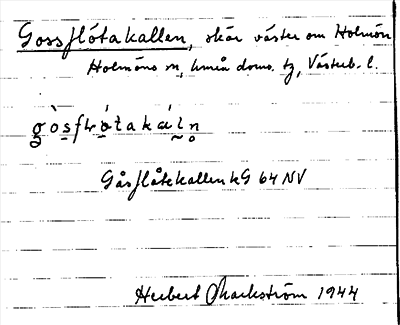 Gossflötakallen, skär väster om Holmön
Holmöns sn, Umeå doms. tg, Västerb. l.
gòsfrö́takál̰n̥
Gåsflötekallen kG 64 NV
Herbert Markström 1944